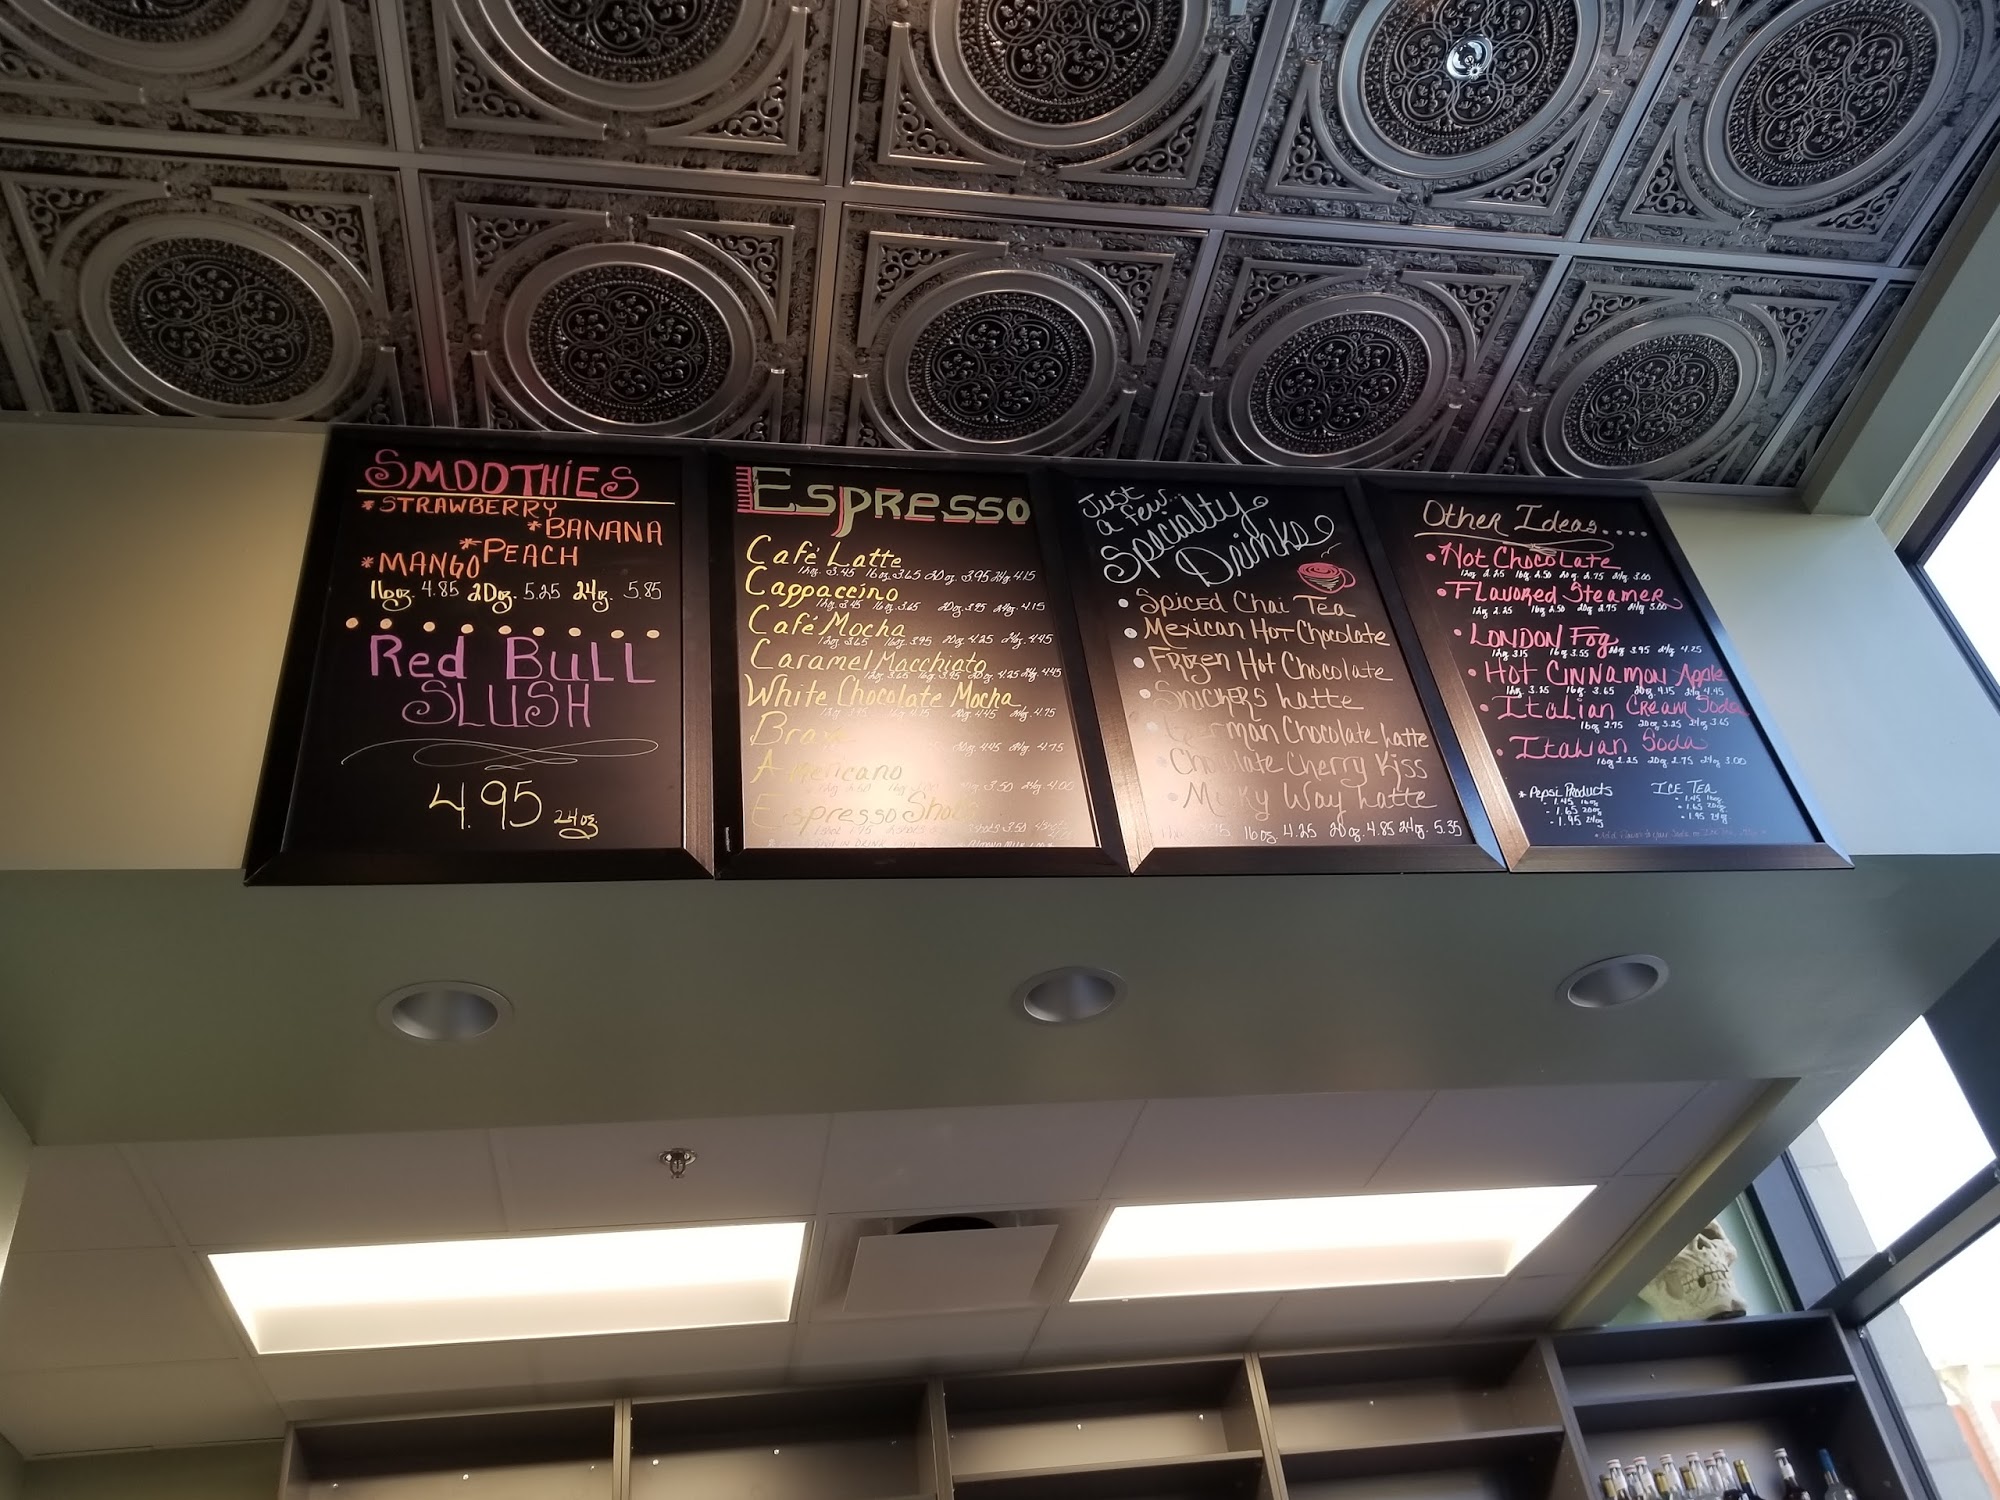 SMOOTHIES
*STRAWBERRY
*BANANA
*PEACH
*MANGO
16oz. 4.85 20oz. 5.25 24oz. 5.85
Red Bull
SLUSH
4.95 24oz.
Espresso
Café Latte
12oz. 3.45 16oz. 3.65 20oz. 3.95 24oz. 4.15
Cappaccino
12oz. 3.45 16oz. 3.65 20oz. 3.95 24oz. 4.15
Café Mocha
12oz. 3.65 16oz. 3.95 20oz. 4.25 24oz. 4.45
Caramel Macchiato
12oz. 3.65 16oz. 3.95 20oz. 4.25 24oz. 4.45
White Chocolate Mocha
12oz. 3.95 16oz. 4.15 20oz. 4.45 24oz. 4.75
20oz. 4.45 24oz. 4.75
Americano
3.50 24oz. 4.00
Espresso
Just
a few...
Specialty
Drinks
Spiced Chai Tea
Mexican Hot Chocolate
Frozen Hot Chocolate
Snickers Latte
German Chocolate Latte
Chocolate Cherry Kiss
Milky Way Latte
16oz. 4.25 20oz. 4.85 24oz. 5.35
Other Ideas....
• Hot Chocolate
12oz 2.25 16oz. 2.50 20oz. 2.75 24oz. 3.00
• Flavored Steamer
12oz 2.25 16oz 2.50 20oz 2.75 24oz 3.00
• LONDON Fog
12oz 3.15 16oz 3.55 20oz 3.95 24oz. 4.25
• Hot Cinnamon Apple
12oz 3.25 16oz. 3.65 20oz 4.15 24oz 4.45
• Italian Cream Soda
16oz 2.75 20oz 3.25 24oz 3.65
• Italian Soda
16oz 2.25 20oz 2.75 24oz 3.00
* Pepsi Products
- 1.45 16oz
- 1.65 20oz
- 1.95 24oz
ICE TEA
- 1.45 16oz
- 1.65 20oz
- 1.95 24oz